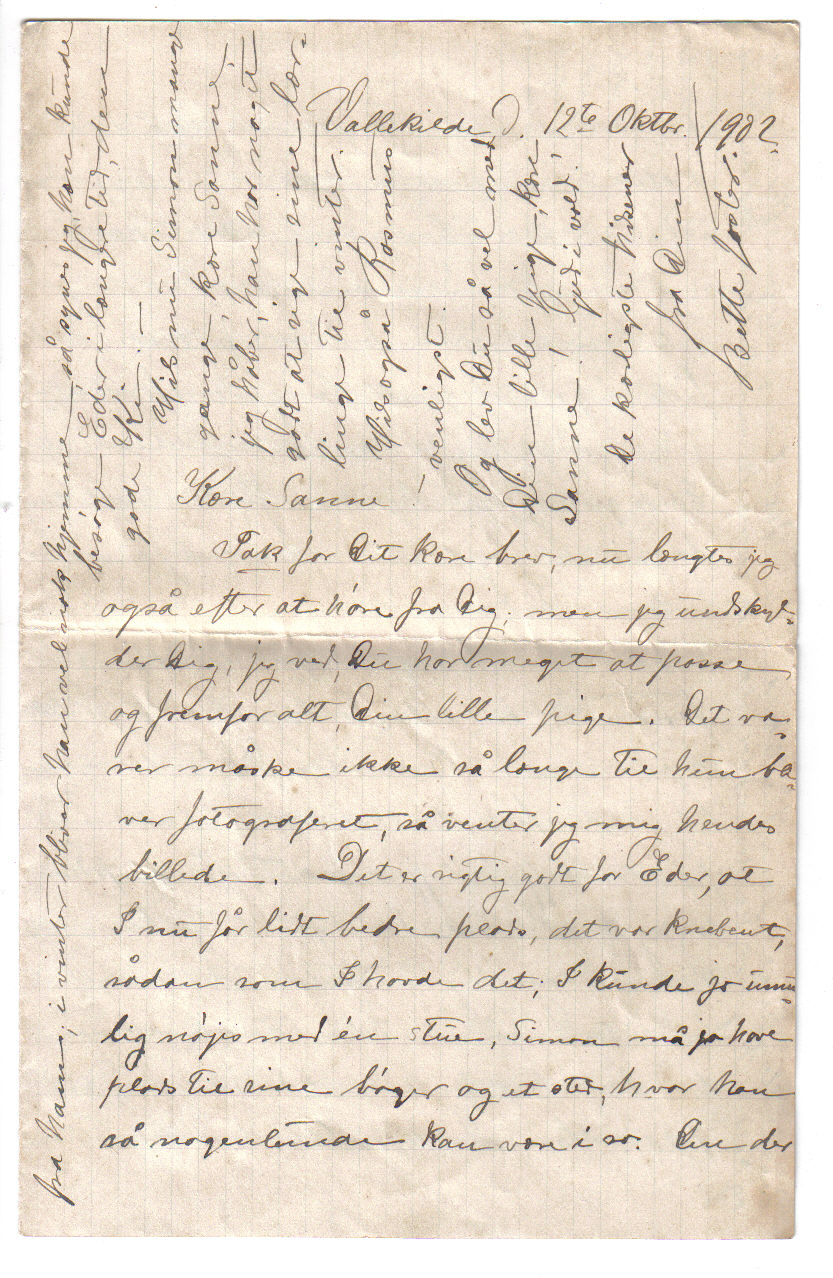 Vallekilde d. 12te Oktbr. 1902.
Kære Sanne!
Tak for Dit kære brev, nu længtes jeg
også efter at høre fra Dig, men jeg undskyl-
der Dig, jeg ved, Du har meget at passe
og fremfor alt Din lille pige. Det va-
rer måske ikke så længe til hun bli-
ver fotograferet, så venter jeg mig hendes
billede. Det er rigtig godt for Eder, at
I nu får lidt bedre plads, det var knebent,
sådan som I havde det; I kunde jo umu-
lig nøjes med én stue, Simon må jo have
plads til sine bøger og et sted, hvor han
så nogenlunde kan være i ro. Den der
fra Hans; i vinter bliver han vel nok hjemme, så synes jeg, han kunde
besøge Eder i længere tid, den
gode
Hils nu Simon mange
gange, kære Sanne,
jeg håber, han har noget
godt at sige sine lær-
linge til vinter.
Hils også Rasmus
venligst.
Og lev Du så vel med
Din lille pige, kære
Sanne! Gud i vold!
De kærligste hilsener
fra Din
Jette faster.